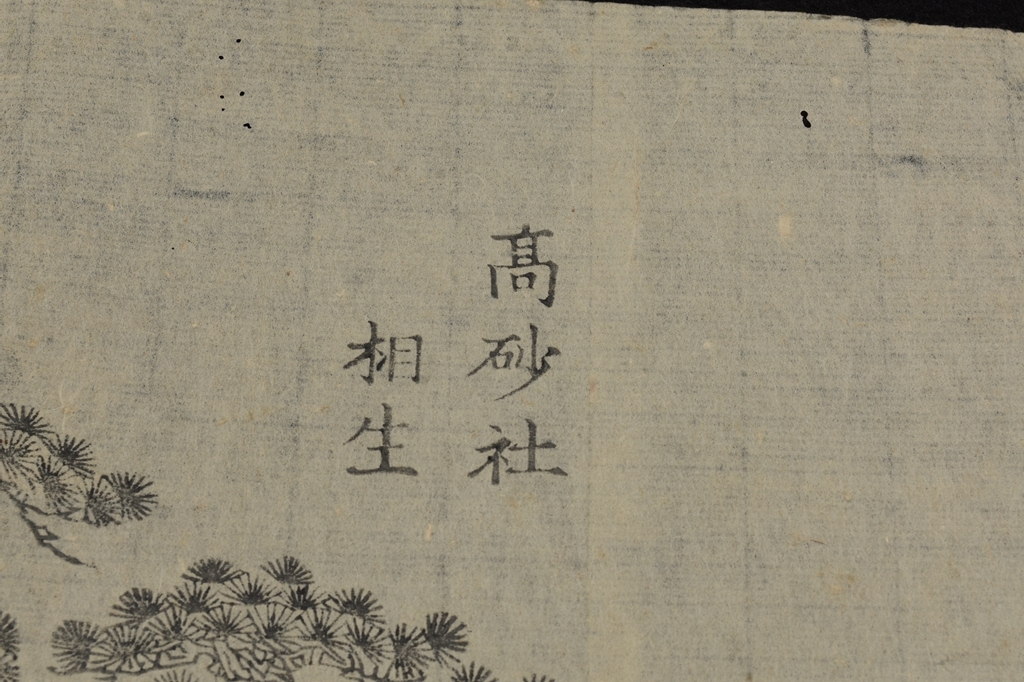 髙砂社
相生